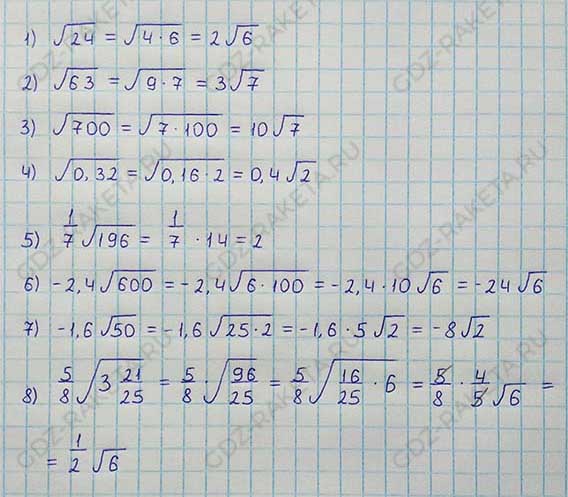 1) √24 = √4·6 = 2√6
2) √63 = √9·7 = 3√7
3) √700 = √7·100 = 10√7
4) √0,32 = √0,16·2 = 0,4√2
5) 1/7 √196 = 1/7 · 14 = 2
6) -2,4√600 = -2,4√6·100 = -2,4·10√6 = -24√6
7) -1,6√50 = -1,6√25·2 = -1,6·5√2 = -8√2
8) 5/8 √3 21/25 = 5/8 · √96/25 = 5/8 √16/25 · 6 = 5/8 · 4/5 √6 =
= 1/2 √6
GDZ-RAKETA.RU